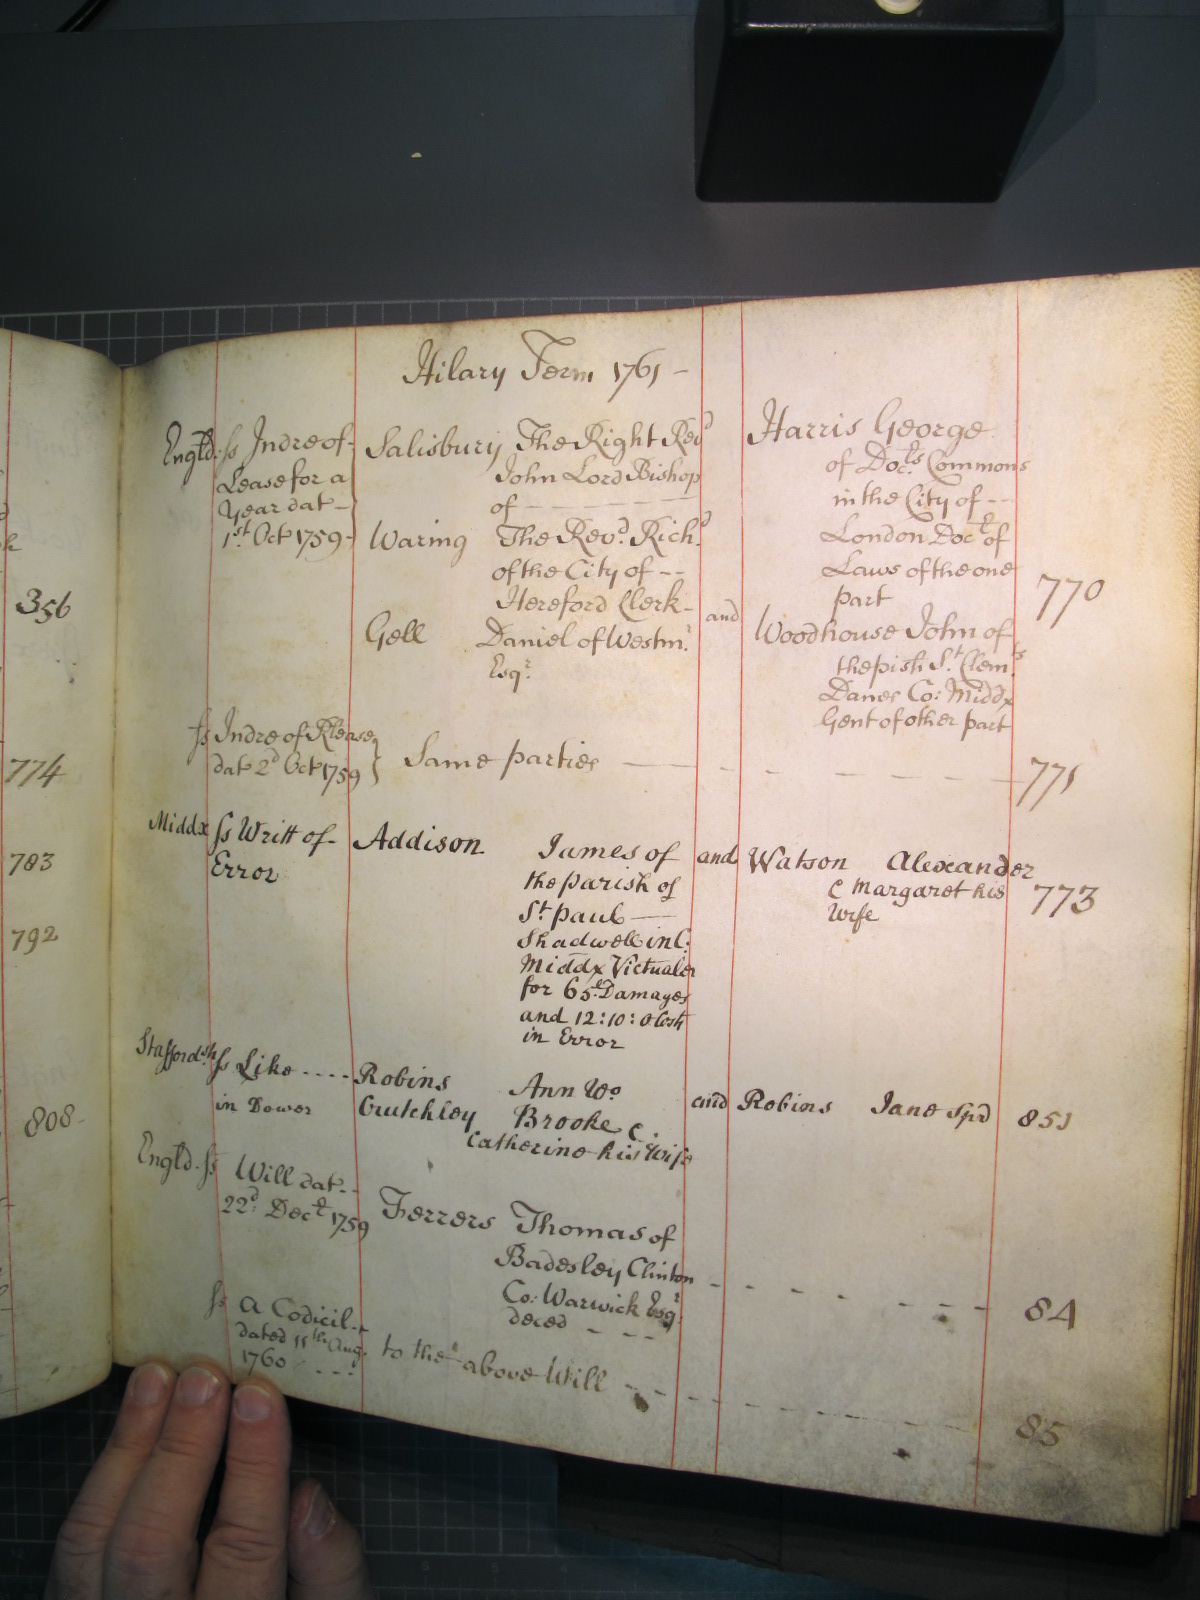 356
774
783
792
808
Hilary Term 1761 -
Engld. ss Indre of
Lease for a
Year dat -
1st Oct 1759 -
Salisbury The Right Revd
John Lord Bishop
of - - - - - -
Waring The Revd. Richd.
of the City of - -
Hereford Clerk -
Gell Daniel of Westmr.
Esqr.
and
Harris George
of Docrs Commons
in the City of - -
London Docr of
Laws of the one
part
Woodhouse John of
the pish St. Clemts
Danes Co: Middx
Gent of other part
770
ss Indre of Rlease
dat 2d Oct 1759 } Same parties - - - - - 771
Middx ss Writt of -
Error
Addison James of
the parish of
St. paul —
Shadwell in C:
Middx Victualer
for 65£ Damages
and 12:10:0 Costs
in Error
and Watson Alexander
& Margaret his
Wife
773
Staffordsh. ss Like - - - -
in Dower
Robins Ann Wo.
Crutchley Brooke &
Catherine his Wife
and Robins Jane Spr 851
Engld. ss Will dat - -
22d. Decr 1759
Ferrers Thomas of
Badesley Clinton
Co: Warwick Esqr
deced - - -
84
ss a Codicil -
dated 11th Aug.
1760 - - -
to the above Will - - - - 85